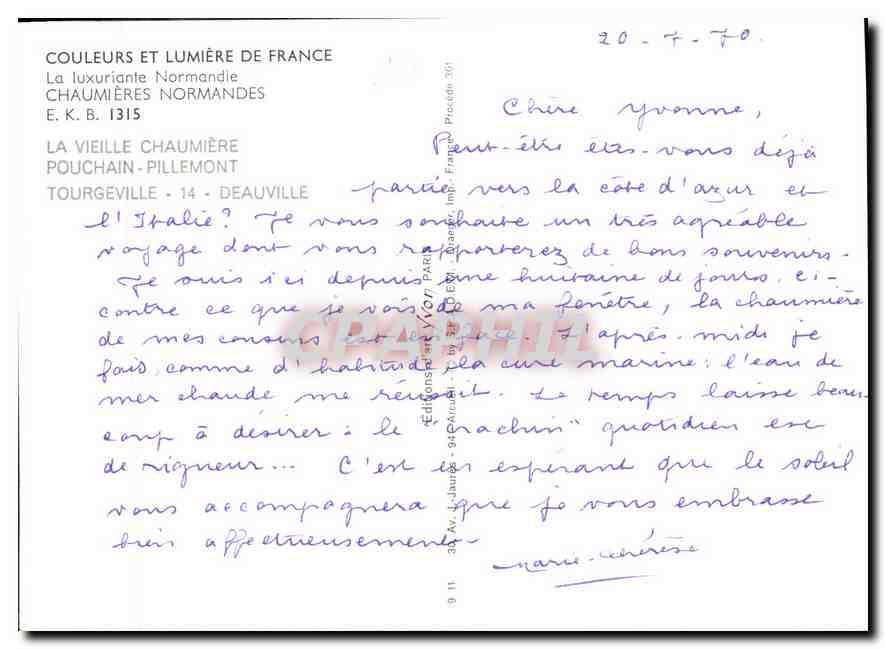 COULEURS ET LUMIÈRE DE FRANCE
La luxuriante Normandie
CHAUMIÈRES NORMANDES
E. K. B. 1315
LA VIEILLE CHAUMIÈRE
POUCHAIN-PILLEMONT
TOURGEVILLE - 14 - DEAUVILLE
20-7-70.
Chère Yvonne,
Peut-être êtes-vous déjà
partie vers la côte d'azur et
l'Italie? Je vous souhaite un très agréable
voyage dont vous rapporterez de bons souvenirs.
Je suis ici depuis une huitaine de jours. ci-
contre ce que je vois de ma fenêtre, la chaumière
de mes cousins est en face. L'après-midi je
fais, comme d'habitude, la cure marine: l'eau de
mer chaude me réussit. Le temps laisse beau-
coup à désirer: le "crachin" quotidien est
de rigueur... C'est en espérant que le soleil
vous accompagnera que je vous embrasse
bien affectueusement-
Marie-Thérèse
9 11 30, Av. J.-Jaurès - 94 - Arcueil
Éditions d'art Yvon PARIS
Draeger, Imp. - France - Procédé 301
CPARFIL